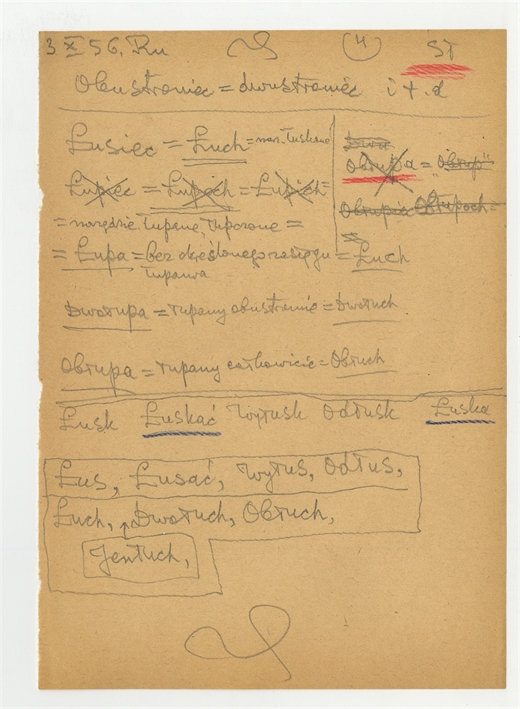 3 XI 56. Ru (4) ST
Obustroniec = dwustroniec i t. d
Łusiec = Łuch = narz. łuskane
Łupiec = Łupich = Łupich =
= narzędzie łupane, łuporone =
= Łupa = bez określonego zasięgu = Łuch
łupania
Dwa
Obłupa = "Obłup"
Obłupia Obłupoch =
Dwołupa = łupany obustronnie = Dwołuch
Obłupa = łupany całkowicie = Obłuch
Łusk Łuskać Wyłusk Odłusk Łuska
Łus, Łusać, Wyłus, Odłus,
Łuch, Dwołuch, Obłuch,
Jenłuch,